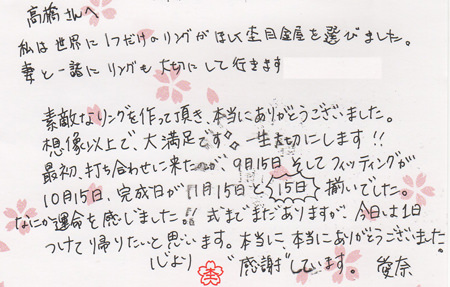 高橋さんへ
私は世界に1つだけのリングがほしく杢目金屋を選びました。
妻と一諸にリングも大切にして行きます
素敵なリングを作って頂き、本当にありがとうございました。
想像以上で、大満足です 一生大切にします!!
最初、打ち合わせに来たのが、9月15日 そしてフィッティングが
10月15日、完成日が11月15日と 15日 揃いでした。
なにか運命を感じました!! 式までまだありますが、今日は1日
つけて帰りたいと思います。本当に、本当にありがとうございました
心より "感謝"しています。 愛奈